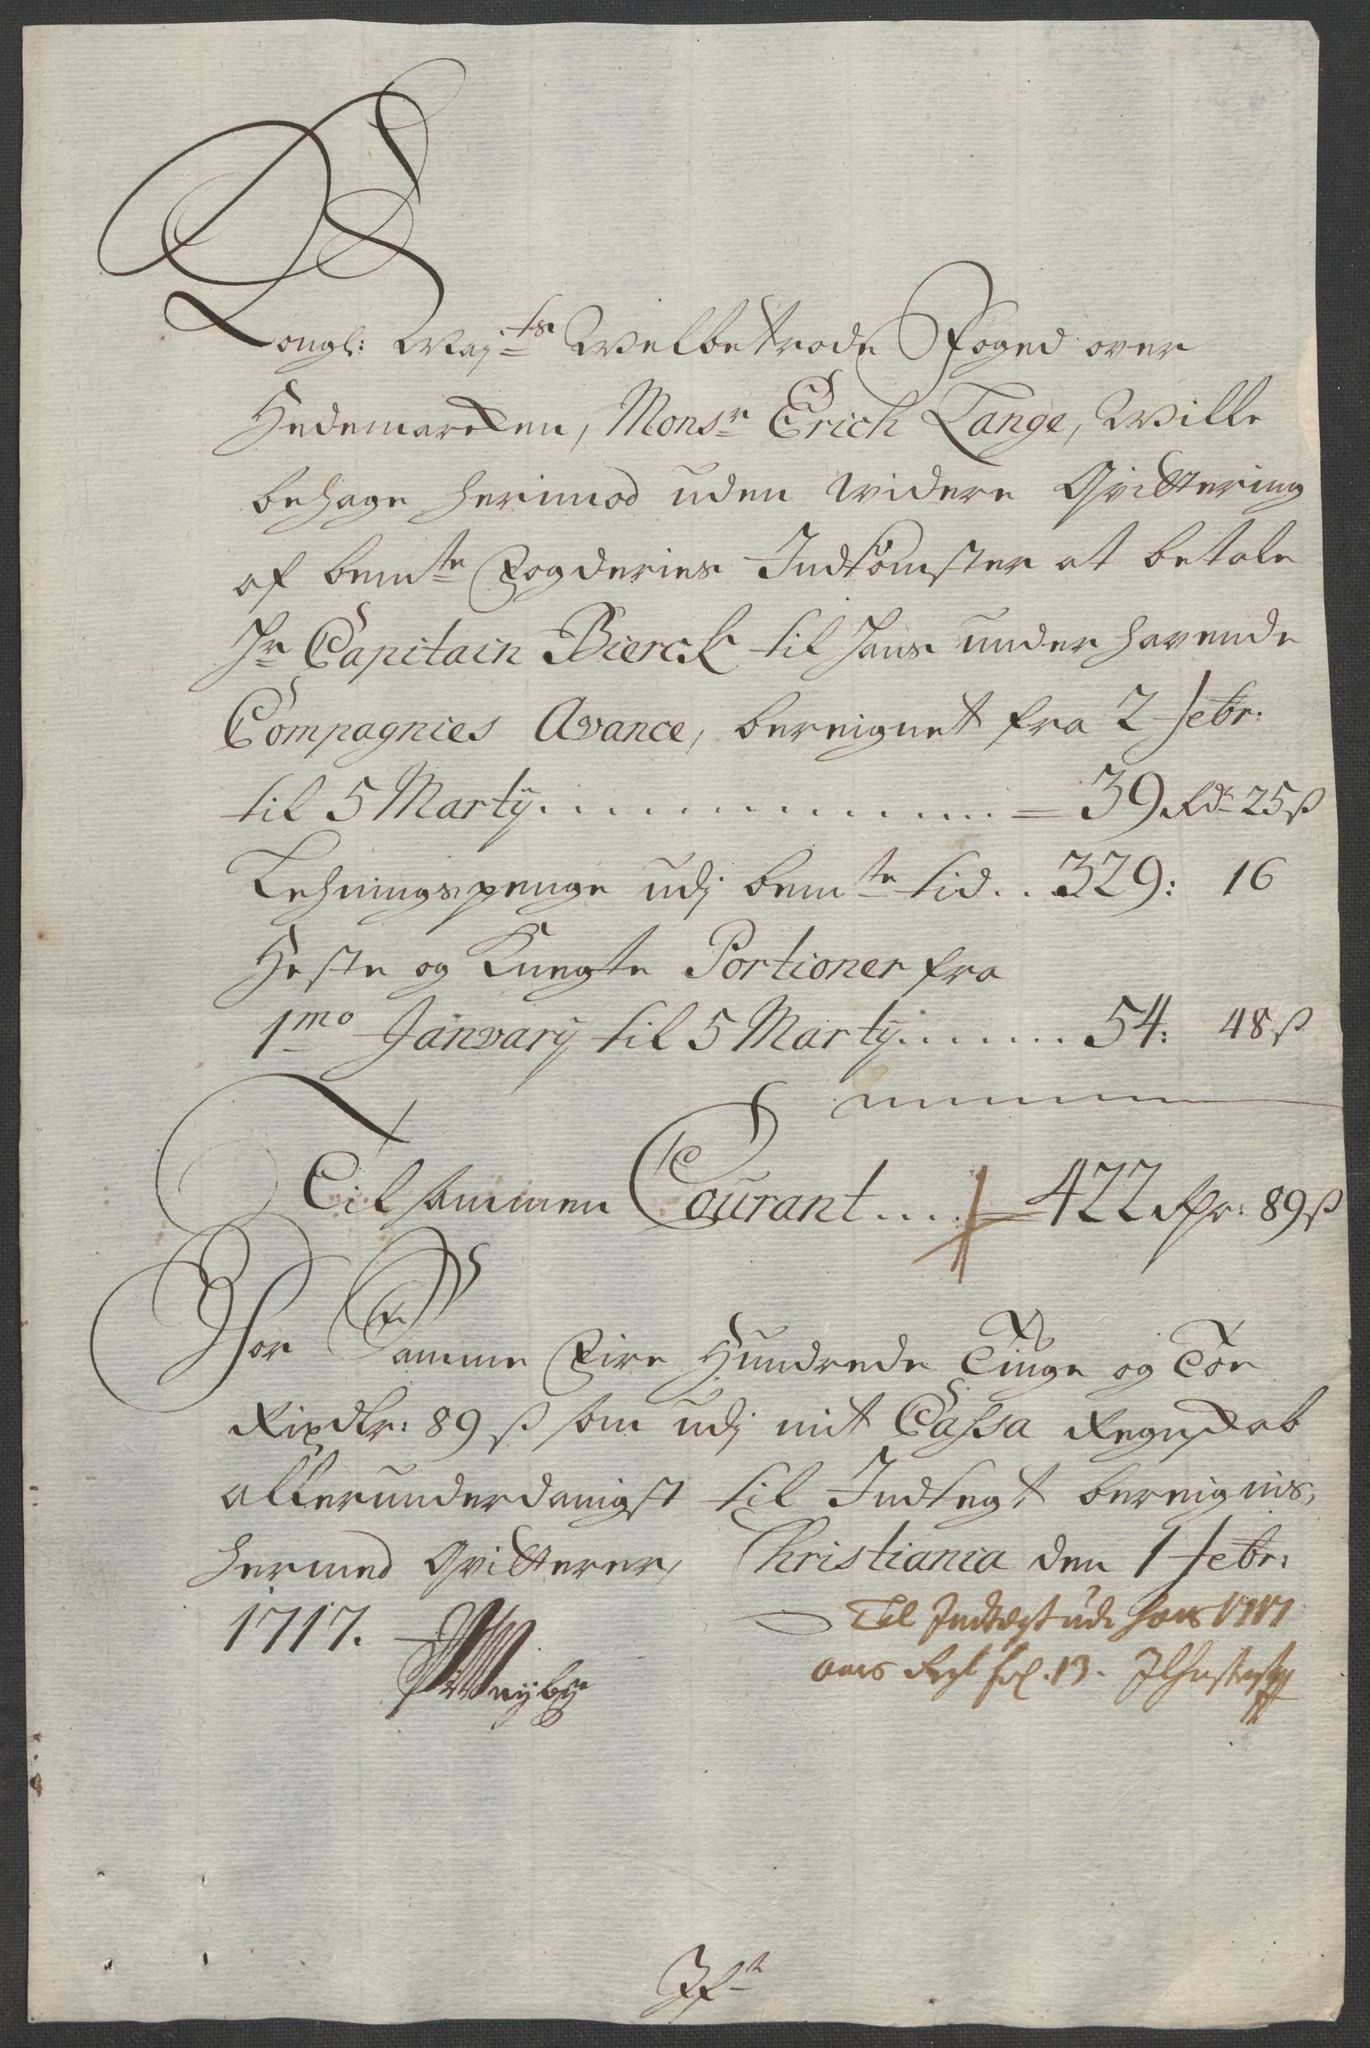 Kongl: Maj:ts Welbetrode Foged over
Hedemarcken, Monsr Erich Lange, Wille
behage herimod uden widere Qvittering
af bemte Fogderies Indkomster at betale
Hr Capitain Bierck til hans underhavende
Compagnies Avance, bereignet fra 2 Febr:
til 5 Martÿ . . . . . . . . . . . . = 39 Rdr 25 ß
Lehningspenge udj bemte tid . . 329: 16
Heste og Knegte Portioner fra
1mo Janvarÿ til 5 Martÿ . . . . . . . 54: 48 ß
Tilsammen Courant . . . . = 422 Rdr: 89 ß
For Samme Fire Hundrede Tiuge og Toe
Rixdlr: 89 ß som udj mit Cassa Regnskab
allerunderdanigst til Indtegt bereignis,
hermed Qvitterer, Christiania den 1 Febr:
1717.
Til Indtegt udj hans 1717
aars Regl fol. 13.